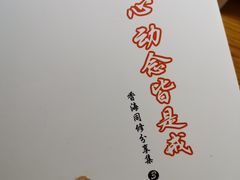 心动念皆是戒
香海同修分享集
③